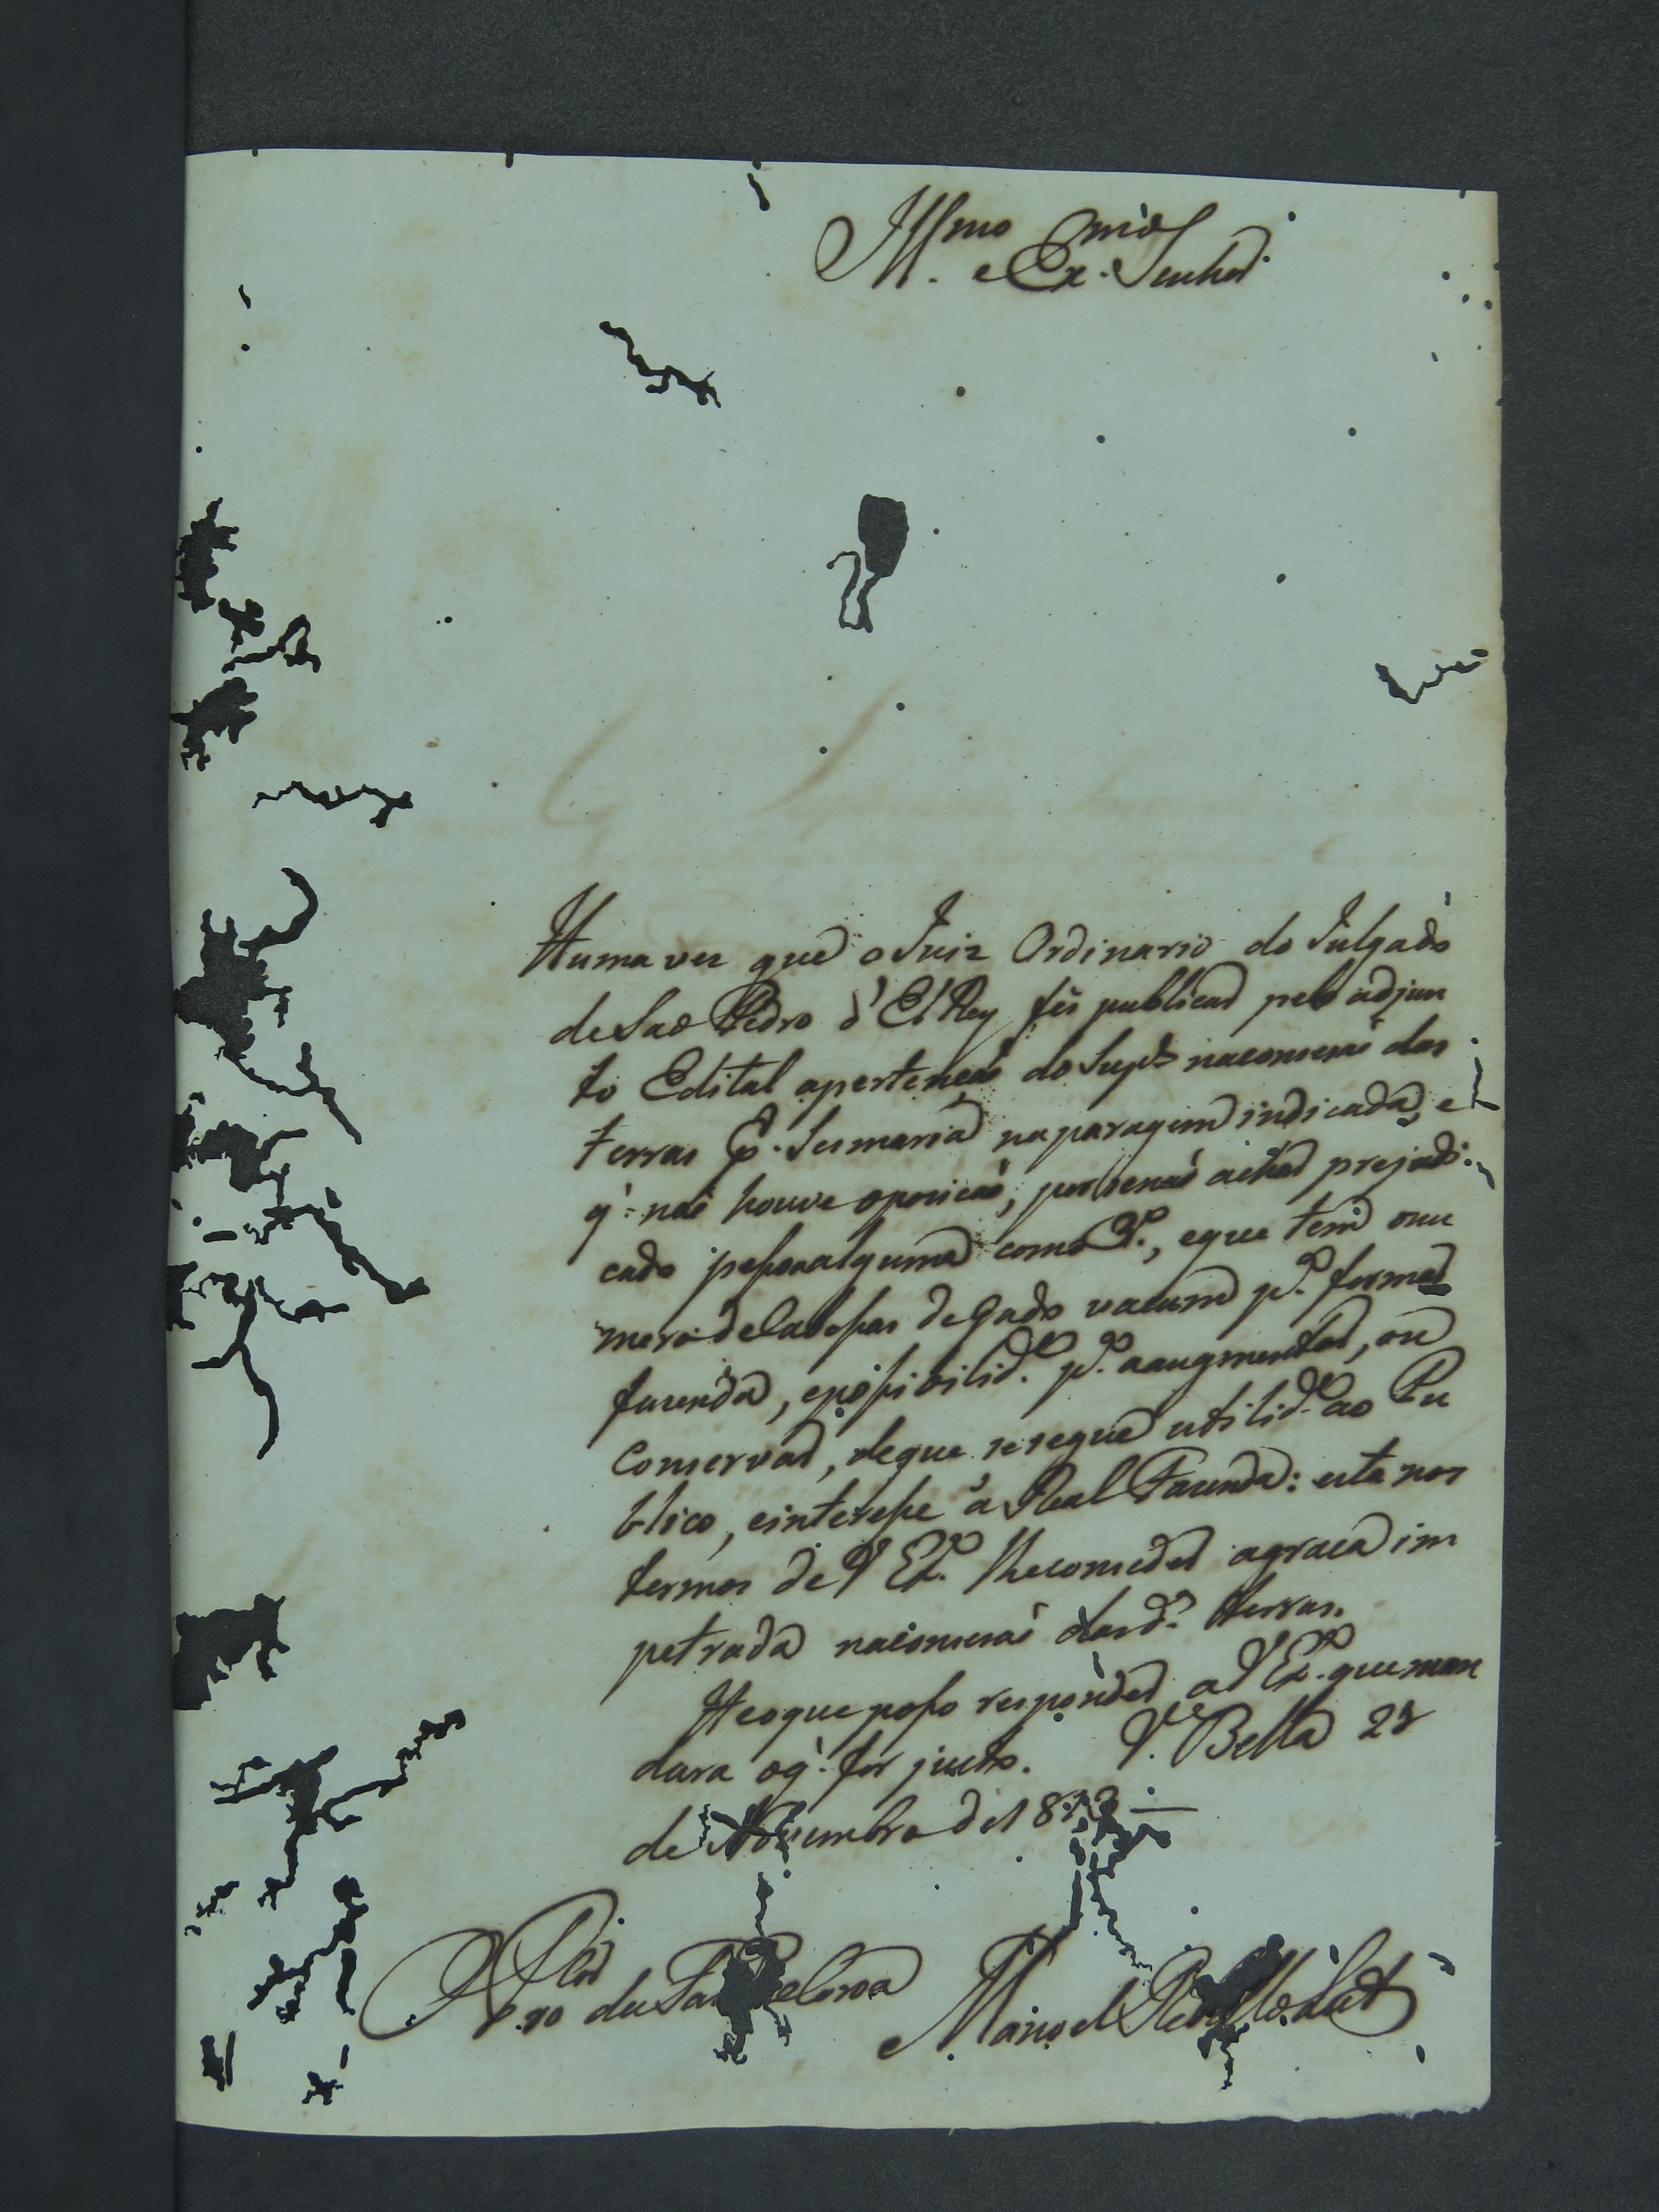 Illmo e Exmo Senhor
Huma vez que o Juiz Ordinario do Julgado
de Saõ Pedro d'El Rey fès publicar pelo adjun
to Edital apertençaõ do Supe naconceçaõ das
terras p. Sesmaria naparagem indicada, e
q' naõ houve opoziçaõ, por senaõ achar prejudi-
cado pessoa alguma com o Do., eque tem onu
mero de Cabessas de Gado vacum pa. formar
fazenda, epossibilide. pa. aaugmentar, ou
Conservar, deque sesegue utilide. ao Pu
blico, einteresse á Real Fazenda: esta nos
termos de V Exa. lhe conceder agraça im
petrada naconceçaõ das das. terras.
He oque posso responder a V Exa. que man
dara oq' for justo. Va. Bella 25
de Novembro de 1813
Manoel Rebello